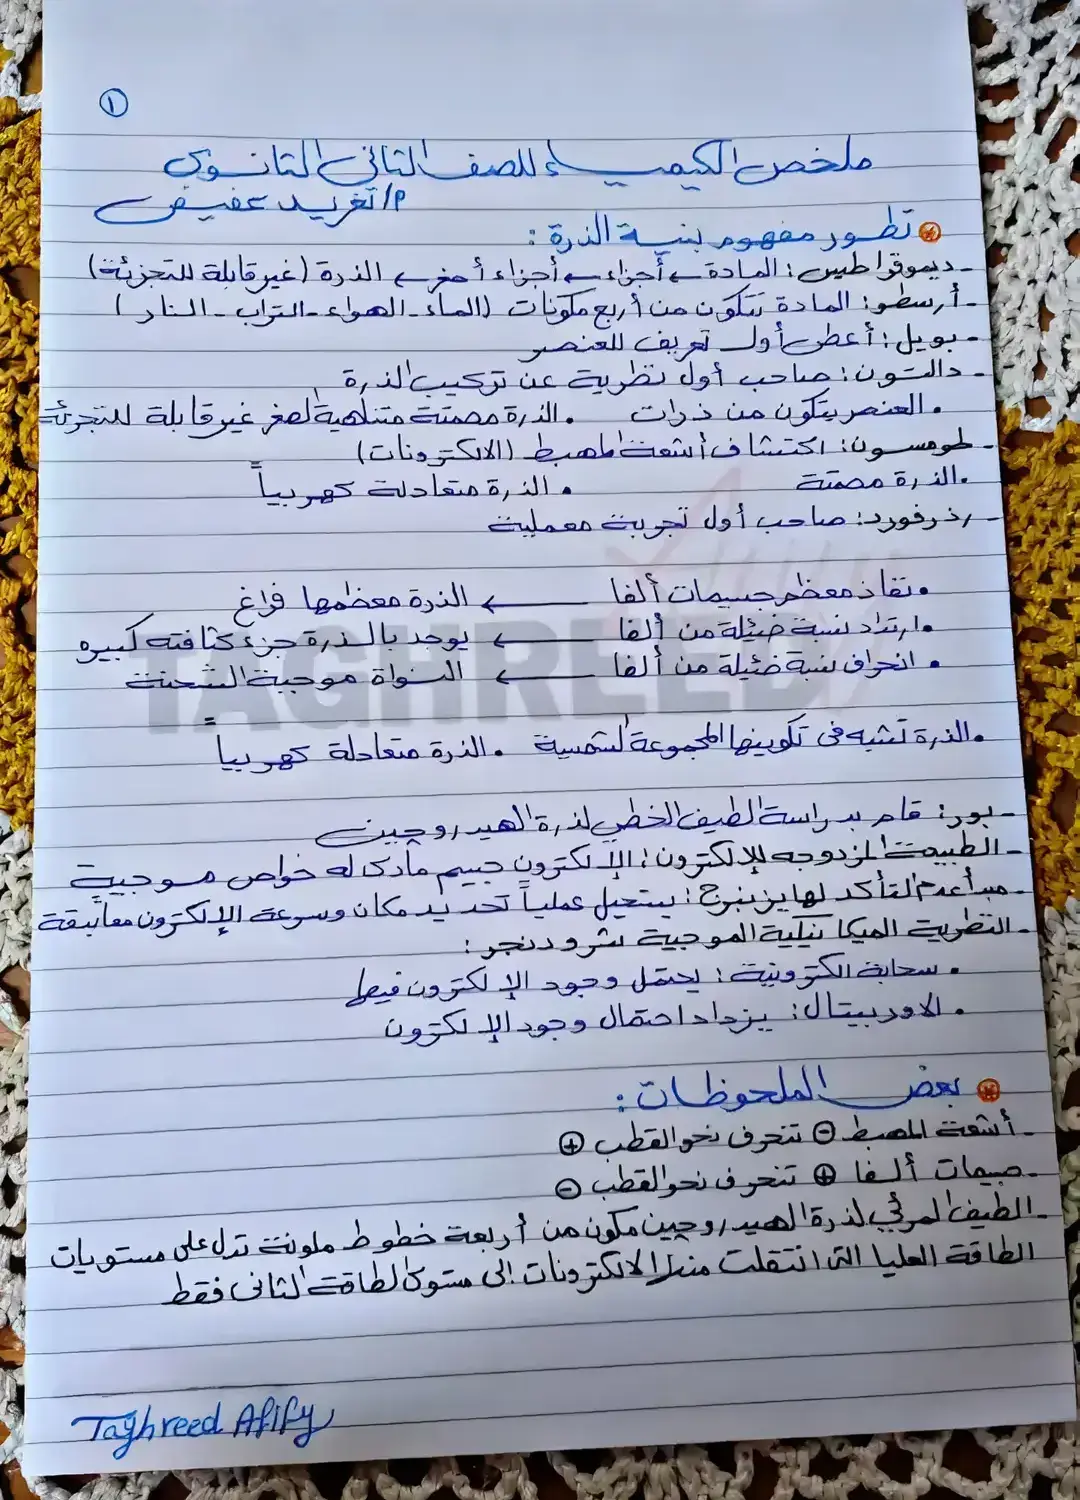 ١
ملخص الكيمياء للصف الثاني الثانوي
م/ تغريد عفيفي
تطور مفهوم بنية الذرة :
- ديموقراطيس : المادة ← أجزاء ← أجزاء أصغر ← الذرة (غير قابلة للتجزئة)
- أرسطو : المادة تتكون من أربع مكونات (الماء - الهواء - التراب - النار)
- بويل : أعطى أول تعريف للعنصر
- دالتون : صاحب أول نظرية عن تركيب الذرة
• العنصر يتكون من ذرات • الذرة مصمتة متناهية الصغر غير قابلة للتجزئة
- طومسون : اكتشاف أشعة المهبط (الالكترونات)
• الذرة مصمتة • الذرة متعادلة كهربياً
- رذرفورد : صاحب أول تجربة معملية
• نفاذ معظم جسيمات ألفا ← الذرة معظمها فراغ
• ارتداد نسبة ضئيلة من ألفا ← يوجد بالذرة جزء كثافته كبيره
• انحراف نسبة ضئيلة من ألفا ← النواة موجبة الشحنة
TAGHREED
• الذرة تشبه فى تكوينها المجموعة الشمسية • الذرة متعادلة كهربياً
- بور : قام بدراسة الطيف الخطي لذرة الهيدروجين
- الطبيعة المزدوجه للإلكترون : الإلكترون جسيم مادى له خواص موجية
- مبدأ عدم التأكد لهايزنبرج : يستحيل عملياً تحديد مكان وسرعة الإلكترون معاً بدقة
- النظرية الميكانيكية الموجية لشرودنجر :
• سحابة الكترونية : يحتمل وجود الإلكترون فيها
• الاوربيتال : يزداد احتمال وجود الإلكترون
بعض الملحوظات :
- أشعة المهبط ⊖ تنحرف نحو القطب ⊕
- جسيمات ألفا ⊕ تنحرف نحو القطب ⊖
- الطيف المرئي لذرة الهيدروجين مكون من أربعة خطوط ملونة تدل على مستويات
الطاقة العليا التى انتقلت منها الالكترونات إلى مستوى الطاقة الثانى فقط
Taghreed Afify